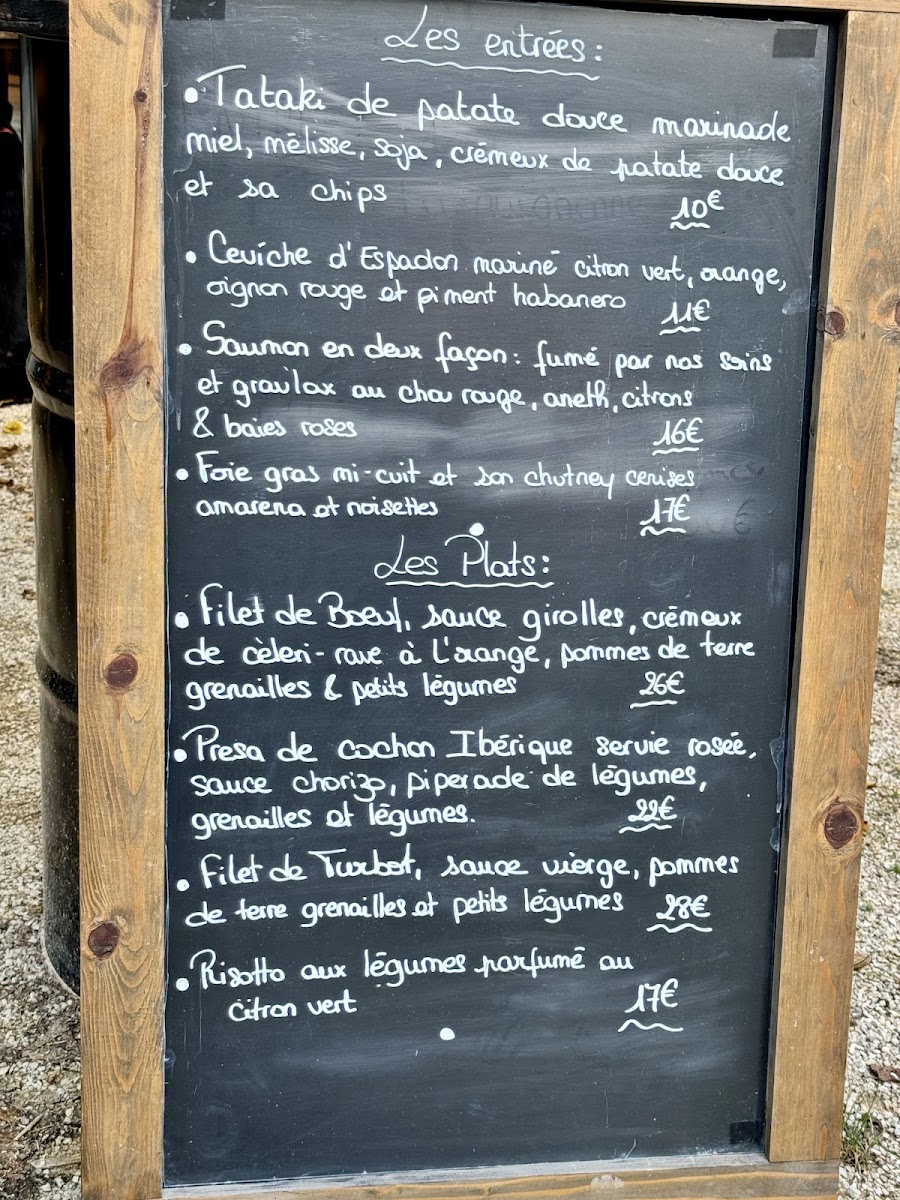 Les entrées:
• Tataki de patate douce marinade
miel, mélisse, soja, crémeux de patate douce
et sa chips 10€
• Ceviche d'Espadon mariné citron vert, orange,
oignon rouge et piment habanero 11€
• Saumon en deux façon: fumé par nos soins
et gravlax au chou rouge, aneth, citrons
& baies roses 16€
• Foie gras mi-cuit et son chutney cerises
amarena et noisettes 17€
Les Plats:
• Filet de Boeuf, sauce girolles, crémeux
de cèleri-rave à L'orange, pommes de terre
grenailles & petits légumes 26€
• Presa de cochon Ibérique servie rosée,
sauce chorizo, piperade de légumes,
grenailles et légumes. 22€
• Filet de Turbot, sauce vierge, pommes
de terre grenailles et petits légumes 28€
• Risotto aux légumes parfumé au
citron vert 17€